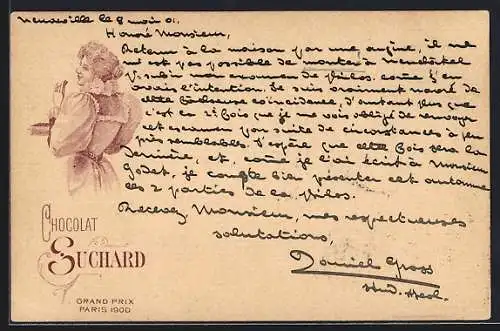 Neuveville le 8 mai 01.
Honoré Monsieur,
Retenu à la maison par une angine, il ne
m'est pas possible de monter à Neuchâtel
y subir mon examen de philos. come j'en
avais l'intention. Je suis vraiment navré de
cette fâcheuse coïncidence, d'autant plus que
c'est la 2e fois que je me vois obligé de renvoyer
cet examen par suite de circonstances à peu
près semblables. J'espère que cette fois sera la
dernière, et, come je l'ai écrit à Monsieur
Godet, je compte bien présenter cet automne
les 2 parties de la philos.
Recevez Monsieur, mes respectueuses
salutations,
Daniel Gross
stud. theol.
CHOCOLAT
SUCHARD
GRAND PRIX
PARIS 1900